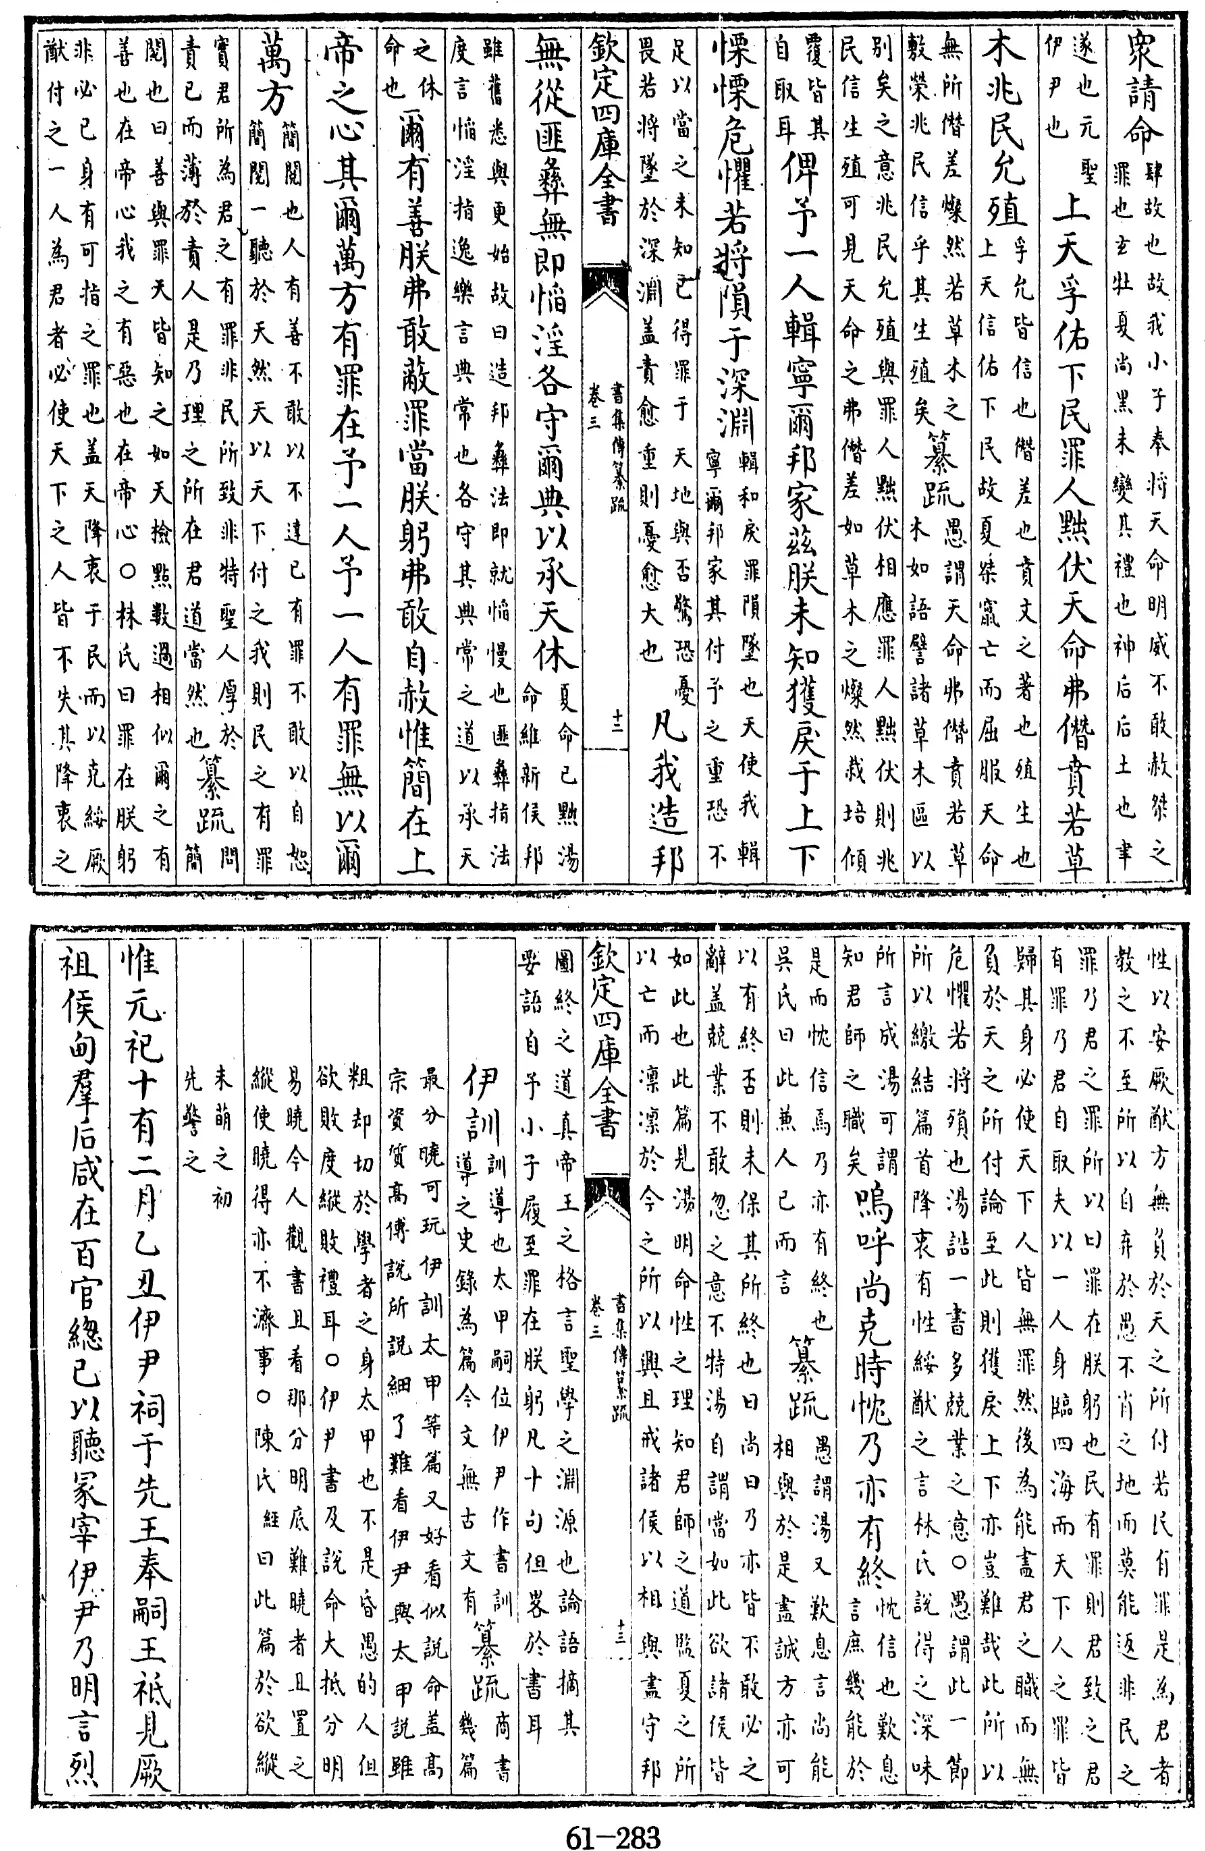 衆請命
肆故也故我小子奉將天命明威不敢赦桀之
罪也玄牡夏尚黑未變其禮也神后后土也聿
遂也元聖
伊尹也
上天孚佑下民罪人黜伏天命弗僭賁若草
木兆民允殖
孚允皆信也僭差也賁文之著也殖生也
上天信佑下民故夏桀竄亡而屈服天命
無所僭差燦然若草木之
敷榮兆民信乎其生殖矣
纂疏
愚謂天命弗僭賁若草
木如語譬諸草木區以
別矣之意兆民允殖與罪人黜伏相應罪人黜伏則兆
民信生殖可見天命之弗僭差如草木之燦然栽培傾
覆皆其
自取耳
俾予一人輯寧爾邦家茲朕未知獲戾于上下
慄慄危懼若將隕于深淵
輯和戾罪隕墜也天使我輯
寧爾邦家其付予之重恐不
足以當之未知已得罪于天地與否驚恐憂
畏若將墜於深淵蓋責愈重則憂愈大也
凡我造邦
欽定四庫全書
書集傳纂疏
卷三
十二
無從匪彝無即慆淫各守爾典以承天休
夏命已黜湯
命維新侯邦
雖舊悉與更始故曰造邦彝法即就慆慢也匪彝指法
度言慆淫指逸樂言典常也各守其典常之道以承天
之休
命也
爾有善朕弗敢蔽罪當朕躬弗敢自赦惟簡在上
帝之心其爾萬方有罪在予一人予一人有罪無以爾
萬方
簡閱也人有善不敢以不達已有罪不敢以自恕
簡閱一聽於天然天以天下付之我則民之有罪
實君所為君之有罪非民所致非特聖人厚於
責已而薄於責人是乃理之所在君道當然也
纂疏
問
簡
閱也曰善與罪天皆知之如天檢點數過相似爾之有
善也在帝心我之有惡也在帝心○林氏曰罪在朕躬
非必已身有可指之罪也蓋天降衷于民而以克綏厥
猷付之一人為君者必使天下之人皆不失其降衷之
性以安厥猷方無負於天之所付若民有罪是為君者
教之不至所以自弃於愚不肖之地而莫能返非民之
罪乃君之罪所以曰罪在朕躬也民有罪則君致之君
有罪乃君自取夫以一人身臨四海而天下人之罪皆
歸其身必使天下人皆無罪然後為能盡君之職而無
負於天之所付論至此則獲戾上下亦豈難哉此所以
危懼若將殞也湯誥一書多兢業之意○愚謂此一節
所以繳結篇首降衷有性綏猷之言林氏說得之深味
所言成湯可謂
知君師之職矣
嗚呼尚克時忱乃亦有終
忱信也歎息
言庶幾能於
是而忱信焉乃亦有終也
吳氏曰此兼人已而言
纂疏
愚謂湯又歎息言尚能
相與於是盡誠方亦可
以有終否則未保其所終也曰尚曰乃亦皆不敢必之
辭蓋兢業不敢忽之意不特湯自謂當如此欲諸侯皆
如此也此篇見湯明命性之理知君師之道監夏之所
以亡而凜凜於今之所以興且戒諸侯以相與盡守邦
欽定四庫全書
書集傳纂疏
卷三
十三
圖終之道真帝王之格言聖學之淵源也論語摘其
要語自予小子履至罪在朕躬凡十句但畧於書耳
伊訓
訓導也太甲嗣位伊尹作書訓
導之史錄為篇今文無古文有
纂疏
商書
幾篇
最分曉可玩伊訓太甲等篇又好看似說命蓋高
宗資質高傅說所說細了難看伊尹與太甲說雖
粗却切於學者之身太甲也不是昏愚的人但
欲敗度縱敗禮耳○伊尹書及說命大抵分明
易曉今人觀書且看那分明底難曉者且置之
縱使曉得亦不濟事○陳氏經曰此篇於欲縱
未萌之初
先警之
惟元祀十有二月乙丑伊尹祠于先王奉嗣王祗見厥
祖侯甸羣后咸在百官總已以聽冢宰伊尹乃明言烈
61-283